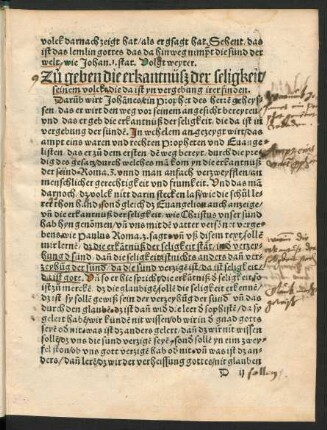 volck darnach zeigt hat/als er gsagt hat. Sehent/das
ist das lemlin gottes das da hinweg nimpt die sünd der
welt/wie Johan.1.stat. Volgt weyter.
Zů geben die erkantnüß der seligkeit/
seinem volck/die da ist yn vergebung irer sünden.
Darüb wirt Johānes/ein Prophet des herrē geheys-
sen/das er wirt den weg vor seinem angesicht bereyten/
vnd das er geb die erkātnüß der seligkeit. die da ist in
vergebung der sündē. In welchem angezeygt wirt/das
ampt eins waren vnd rechten Propheten vnd Euange
listen. das er zů dem ersten dē weg bereyt. durch die pre
dig des gesatz/durch welches mā kom yn die erkantnüß
der seind. Roma.3. vnnd man anfach verzweyffeln/an
menschlicher gerechtigkeit vnd frumkeit. Vnd das mā
darnoch dz volck nit darin stecken laß/wie die schůl le-
rer thon hand/sond gleich dz Euangelion auch anzeige/
vn die erkantnüß der seligkeit/wie Christus vnser sünd
hab hyn genōmen/vn vns mit dē vatter versont vn verge
bens/wie Paulus Roma.3. sagt vn yn disem text/solle
mir lernē/dz die erkātnüß der seligkeit stāt/in d verzey-
hung d sünd. dan die seligkeit ist nichts anders dan ver-
zeyhūg der sünd/da die sünd verzigē ist/da ist seligkeit/
da ist gott. Vn so er hie spricht/die erkātnüß d seligkeit/so
ist zů merckē/dz die glaubigē/sollē die seligkeit erkenē/
dz ist sy sollē gewiß sein der verzeyhūg der sünd vn das
durch den glaubē/dz ist dan wid d' leer d' sophistē/da sy
gelert habē/wir kündē nit wissen/ob wir in d' gnad gotts
seyē od nit/was ist dz anders gelert/dan dz wir nit wissen
sollē/dz vns die sünd verzigē seyē/sond sollē yn eim zwey-
fel ston/ob vns gott verzigē hab od nit/vn was ist dz an-
ders/dan lerē/dz wit der verheissung gottes/nit glauben
D ij sollen/